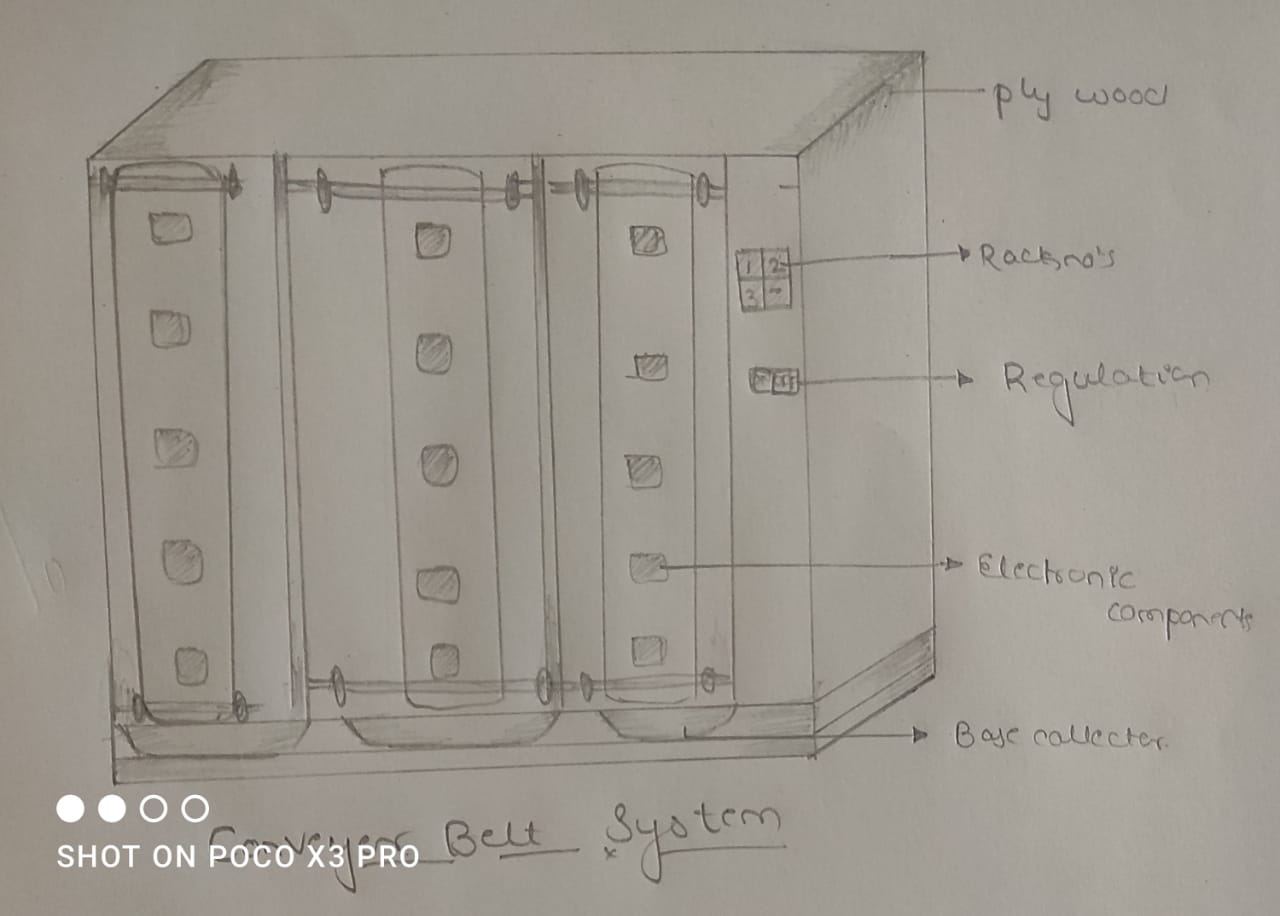 ply wood
Rackno's
1 2
3
Regulation
Electronic
components
Base collecter.
Conveyer Belt System
SHOT ON POCO X3 PRO